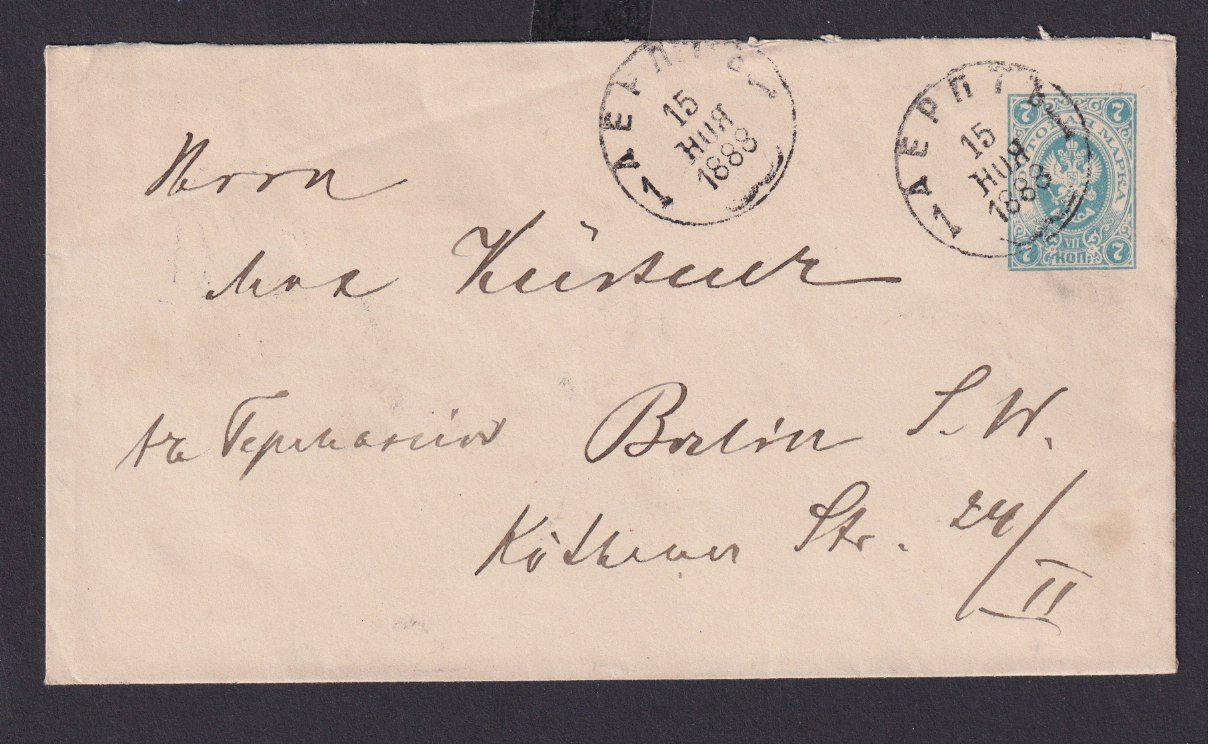 1 ДЕРПТЪ 1
15
НОЯ
1888
1 ДЕРПТЪ 1
15
НОЯ
1888
7 7
ПОЧТОВАЯ МАРКА
VII
7 КОП. 7
Herrn
Max Küstner
въ Германію Berlin S.W.
Köthener Str. 24/II